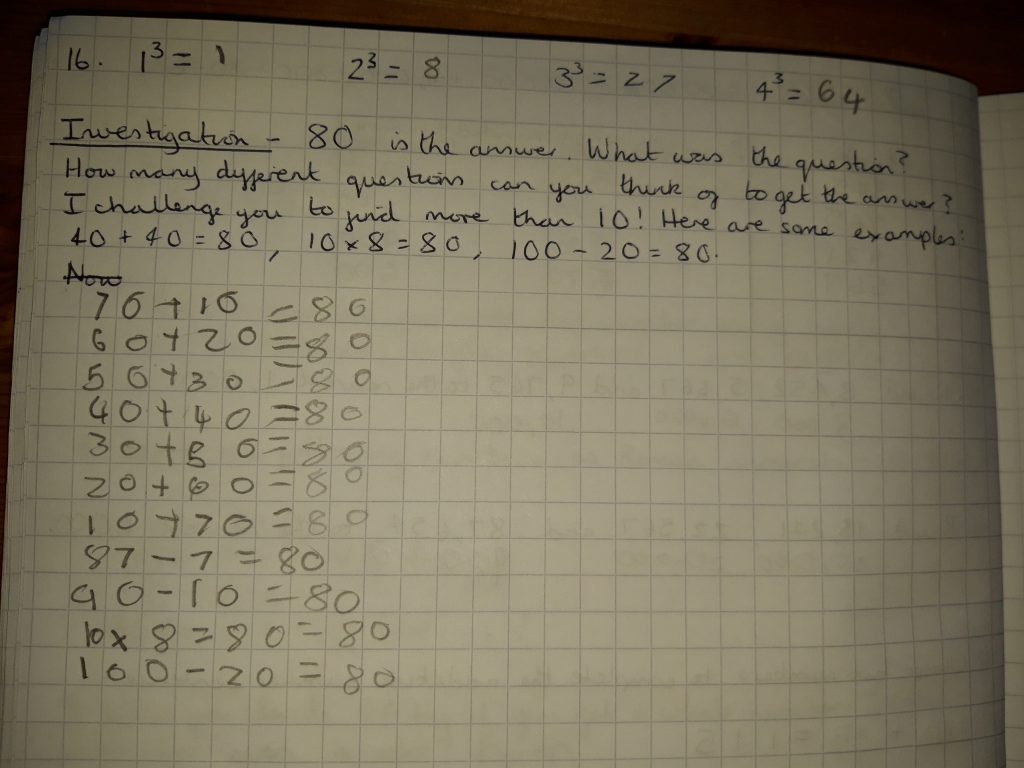 16. 1³ = 1 2³ = 8 3³ = 27 4³ = 64
Investigation - 80 is the answer. What was the question?
How many different questions can you think of to get the answer?
I challenge you to find more than 10! Here are some examples:
40 + 40 = 80, 10 × 8 = 80, 100 - 20 = 80.
Now
70 + 10 = 80
60 + 20 = 80
50 + 30 = 80
40 + 40 = 80
30 + 50 = 80
20 + 60 = 80
10 + 70 = 80
87 - 7 = 80
90 - 10 = 80
10 × 8 = 80 = 80
100 - 20 = 80